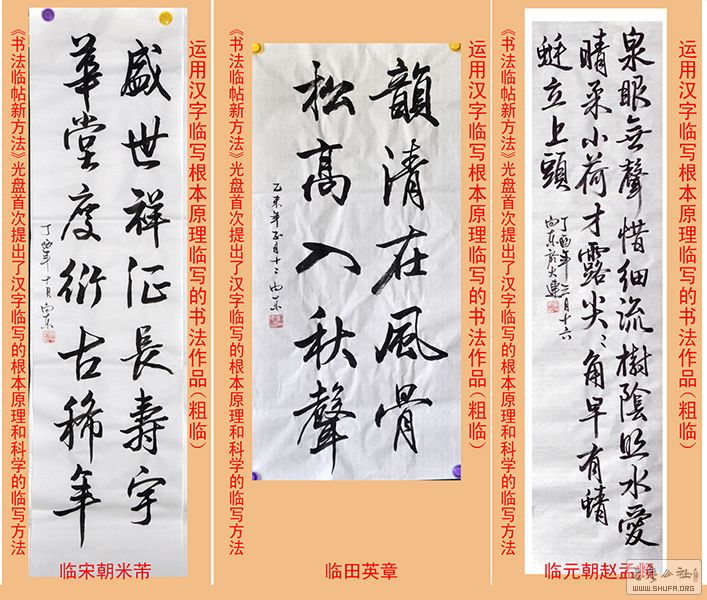 运用汉字临写根本原理临写的书法作品(粗临)
盛世祥征長壽宇
華堂慶衍古稀年
丁酉年十月向东
《书法临帖新方法》光盘首次提出了汉字临写的根本原理和科学的临写方法
临宋朝米芾
运用汉字临写根本原理临写的书法作品(粗临)
韻清在風骨
松高入秋聲
乙未年正月十二向东
《书法临帖新方法》光盘首次提出了汉字临写的根本原理和科学的临写方法
临田英章
运用汉字临写根本原理临写的书法作品(粗临)
泉眼無聲惜細流樹陰照水愛
晴柔小荷才露尖〻角早有蜻
蜓立上頭
丁酉年三月十六
向东於大連
《书法临帖新方法》光盘首次提出了汉字临写的根本原理和科学的临写方法
临元朝赵孟頫
WWW.SHUFA.ORG